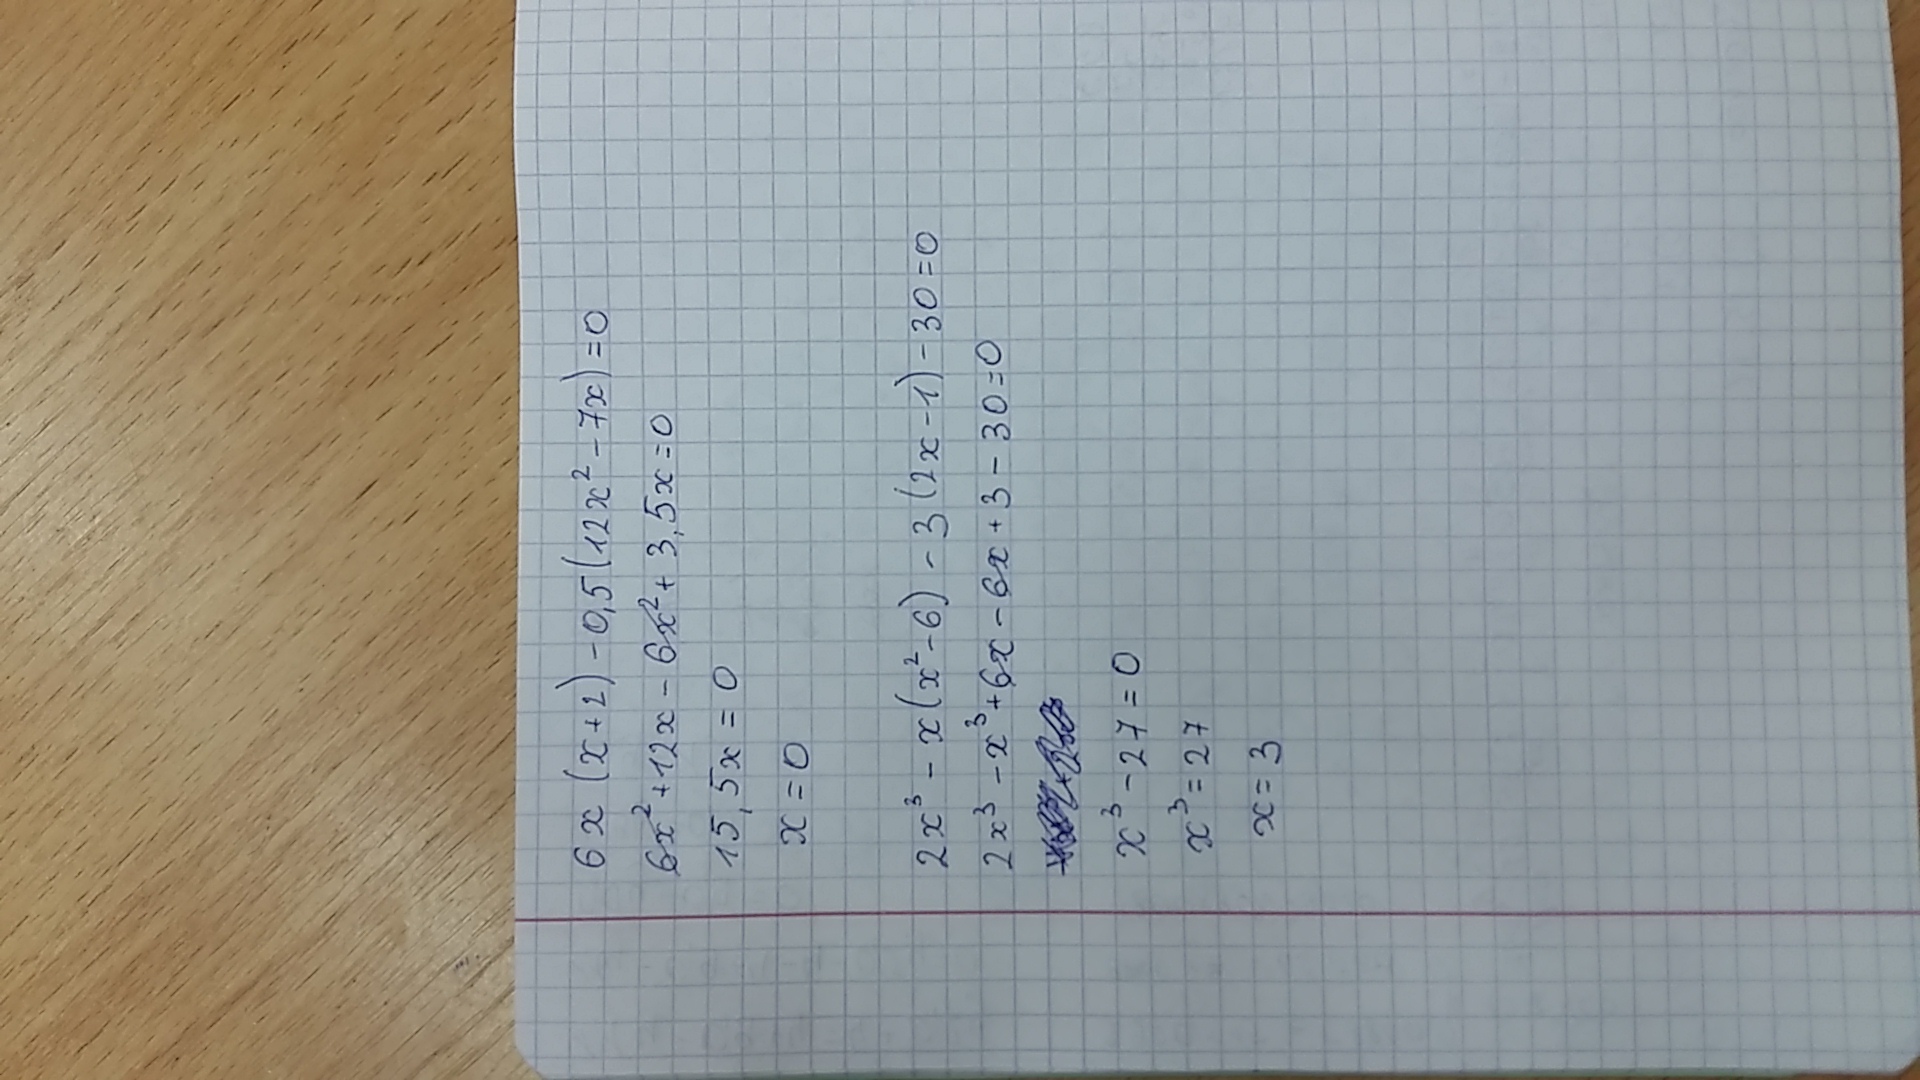 6x(x+2)-0,5(12x²-7x)=0
6x²+12x-6x²+3,5x=0
15,5x=0
x=0
2x³-x(x²-6)-3(2x-1)-30=0
2x³-x³+6x-6x+3-30=0
x³-27=0
x³=27
x=3